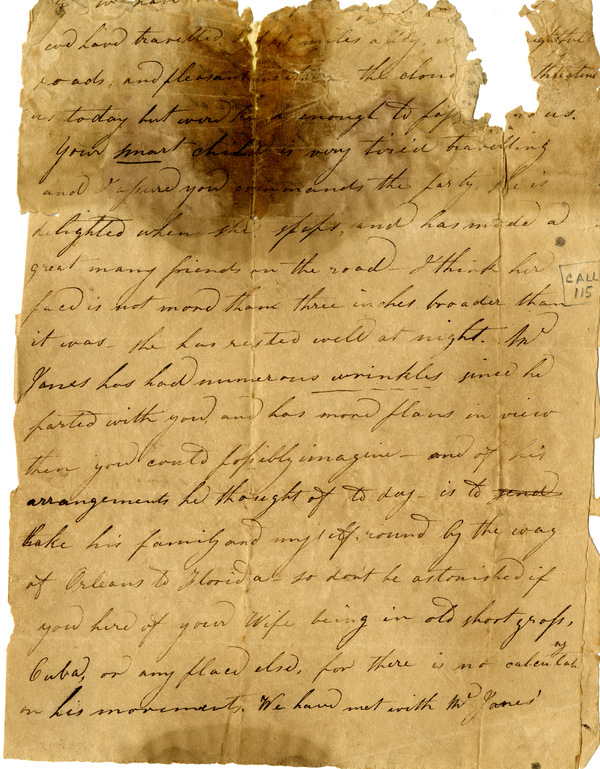 we have
and have travelled miles a day,
roads, and pleasant the cloud threatene
us today but were enough to pass us.
Your smart child is very tired travelling
and I assure you commands the party she is
delighted when she stops, and has made a
great many friends on the road - I think her
face is not more than three inches broader than
it was - she has rested well at night. Mr
Janes has had numerous wrinkles since he
parted with you and has more plans in view
then you could possibly imagine - and of his
arrangements he thought of to day - is to send
take his family and myself round by the way
of Orleans to Florida - so don't be astonished if
you here of your Wife being in old
Cuba, or any place else, for there is no calculating
on his movements. We have met with Mr Janes'
CALL
115